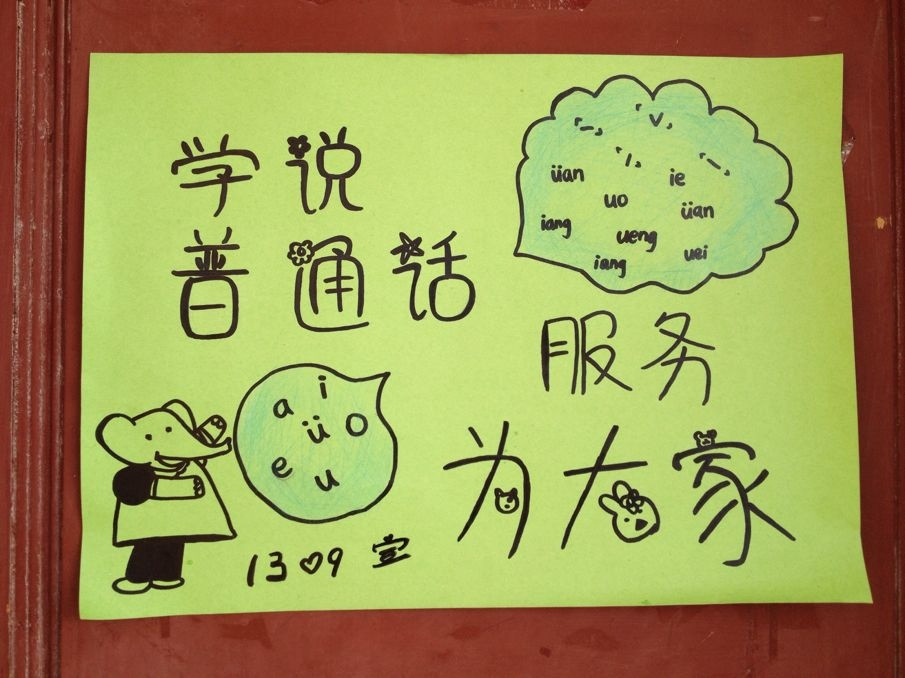 学说
普通话
「ˉ」 「ˇ」
「ˊ」 「ˋ」
üan ie
uo üan
iang ueng
iang uei
服务
为大家
a i
ü o
e u
1309室